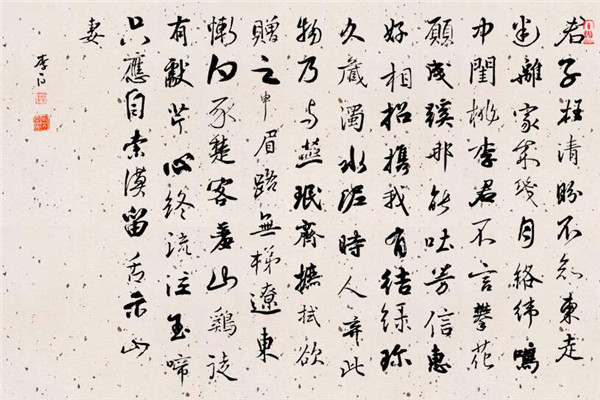 君子枉清盼不知東走
迷離家未幾月絡緯鳴
中閨桃李君不言攀花
願成蹊那能吐芳信惠
好相招携我有結緑珎
久藏濁水泥時人弃此
物乃与燕珉齊摭拭欲
贈之申眉路無梯遼東
慚白豕楚客羞山鷄徒
有獻芹心終流泣玉啼
只應自索漠留舌示山
妻
李白